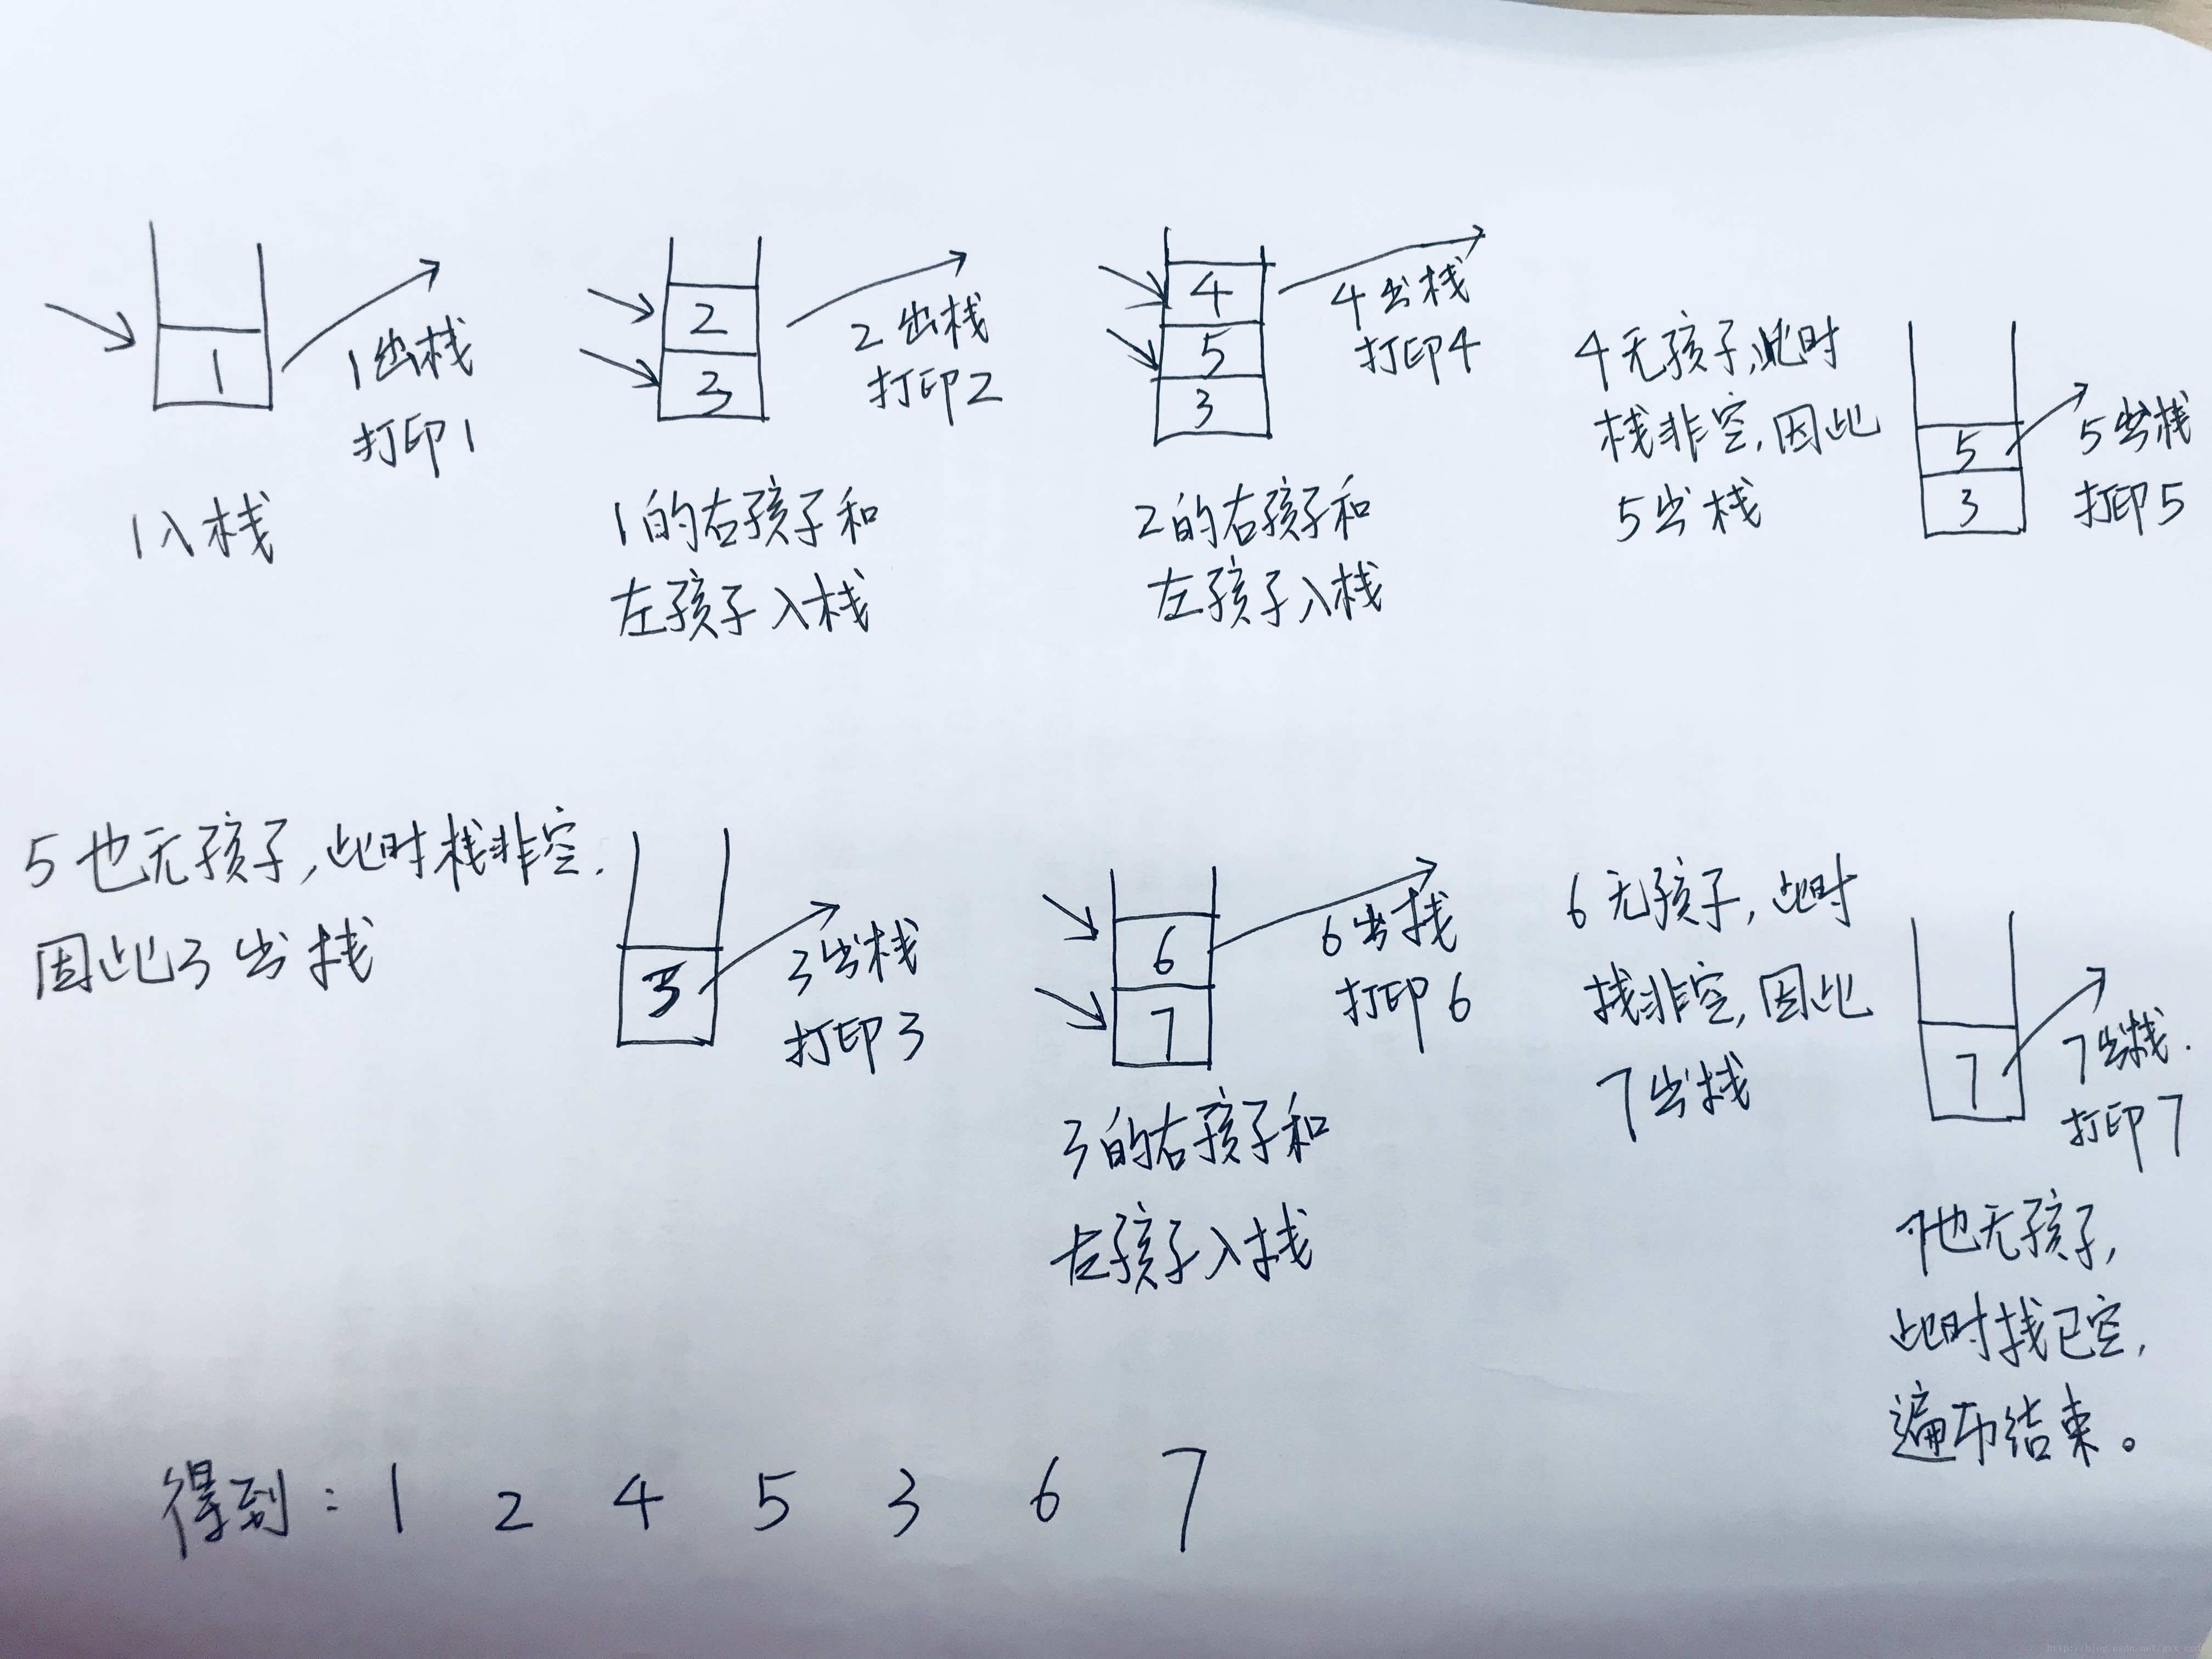 1
1出栈
打印1
1入栈
2
3
2出栈
打印2
1的右孩子和
左孩子入栈
4
5
3
4出栈
打印4
2的右孩子和
左孩子入栈
4无孩子,此时
栈非空,因此
5出栈
5
3
5出栈
打印5
5也无孩子,此时栈非空.
因此3出栈
3
3出栈
打印3
6
7
6出栈
打印6
3的右孩子和
左孩子入栈
6无孩子,此时
栈非空,因此
7出栈
7
7出栈.
打印7
7也无孩子,
此时栈已空,
遍布结束。
得到:1 2 4 5 3 6 7